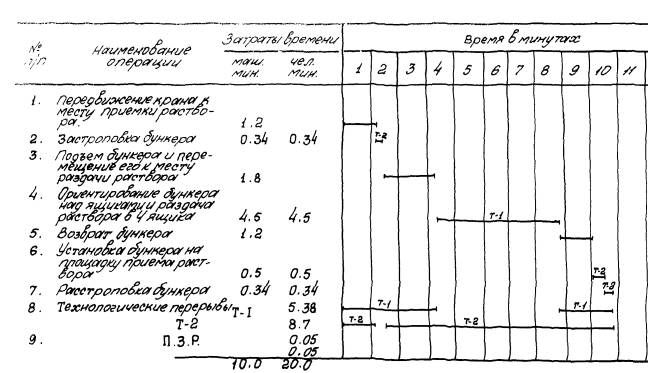 № п/п Наименование операции Затраты времени Время в минутах
маш. мин. чел. мин. 1 2 3 4 5 6 7 8 9 10 11
1. Передвижение крана к
месту приемки раство-
ра. 1.2
2. Застроповка бункера 0.34 0.34 Т-2
3. Подъем бункера и пере-
мещение его к месту
раздачи раствора 1.8
4. Ориентирование бункера
над ящиками и раздача
раствора в 4 ящика 4.6 4.5 Т-1
5. Возврат бункера 1.2
6. Установка бункера на
площадку приема раст-
вора 0.5 0.5 Т-2
7. Расстроповка бункера 0.34 0.34 Т-2
8. Технологические перерывы Т-I 5.38 Т-1 Т-1
Т-2 8.7 Т-2 Т-2
9. П.З.Р. 0.05
0.05
10.0 20.0